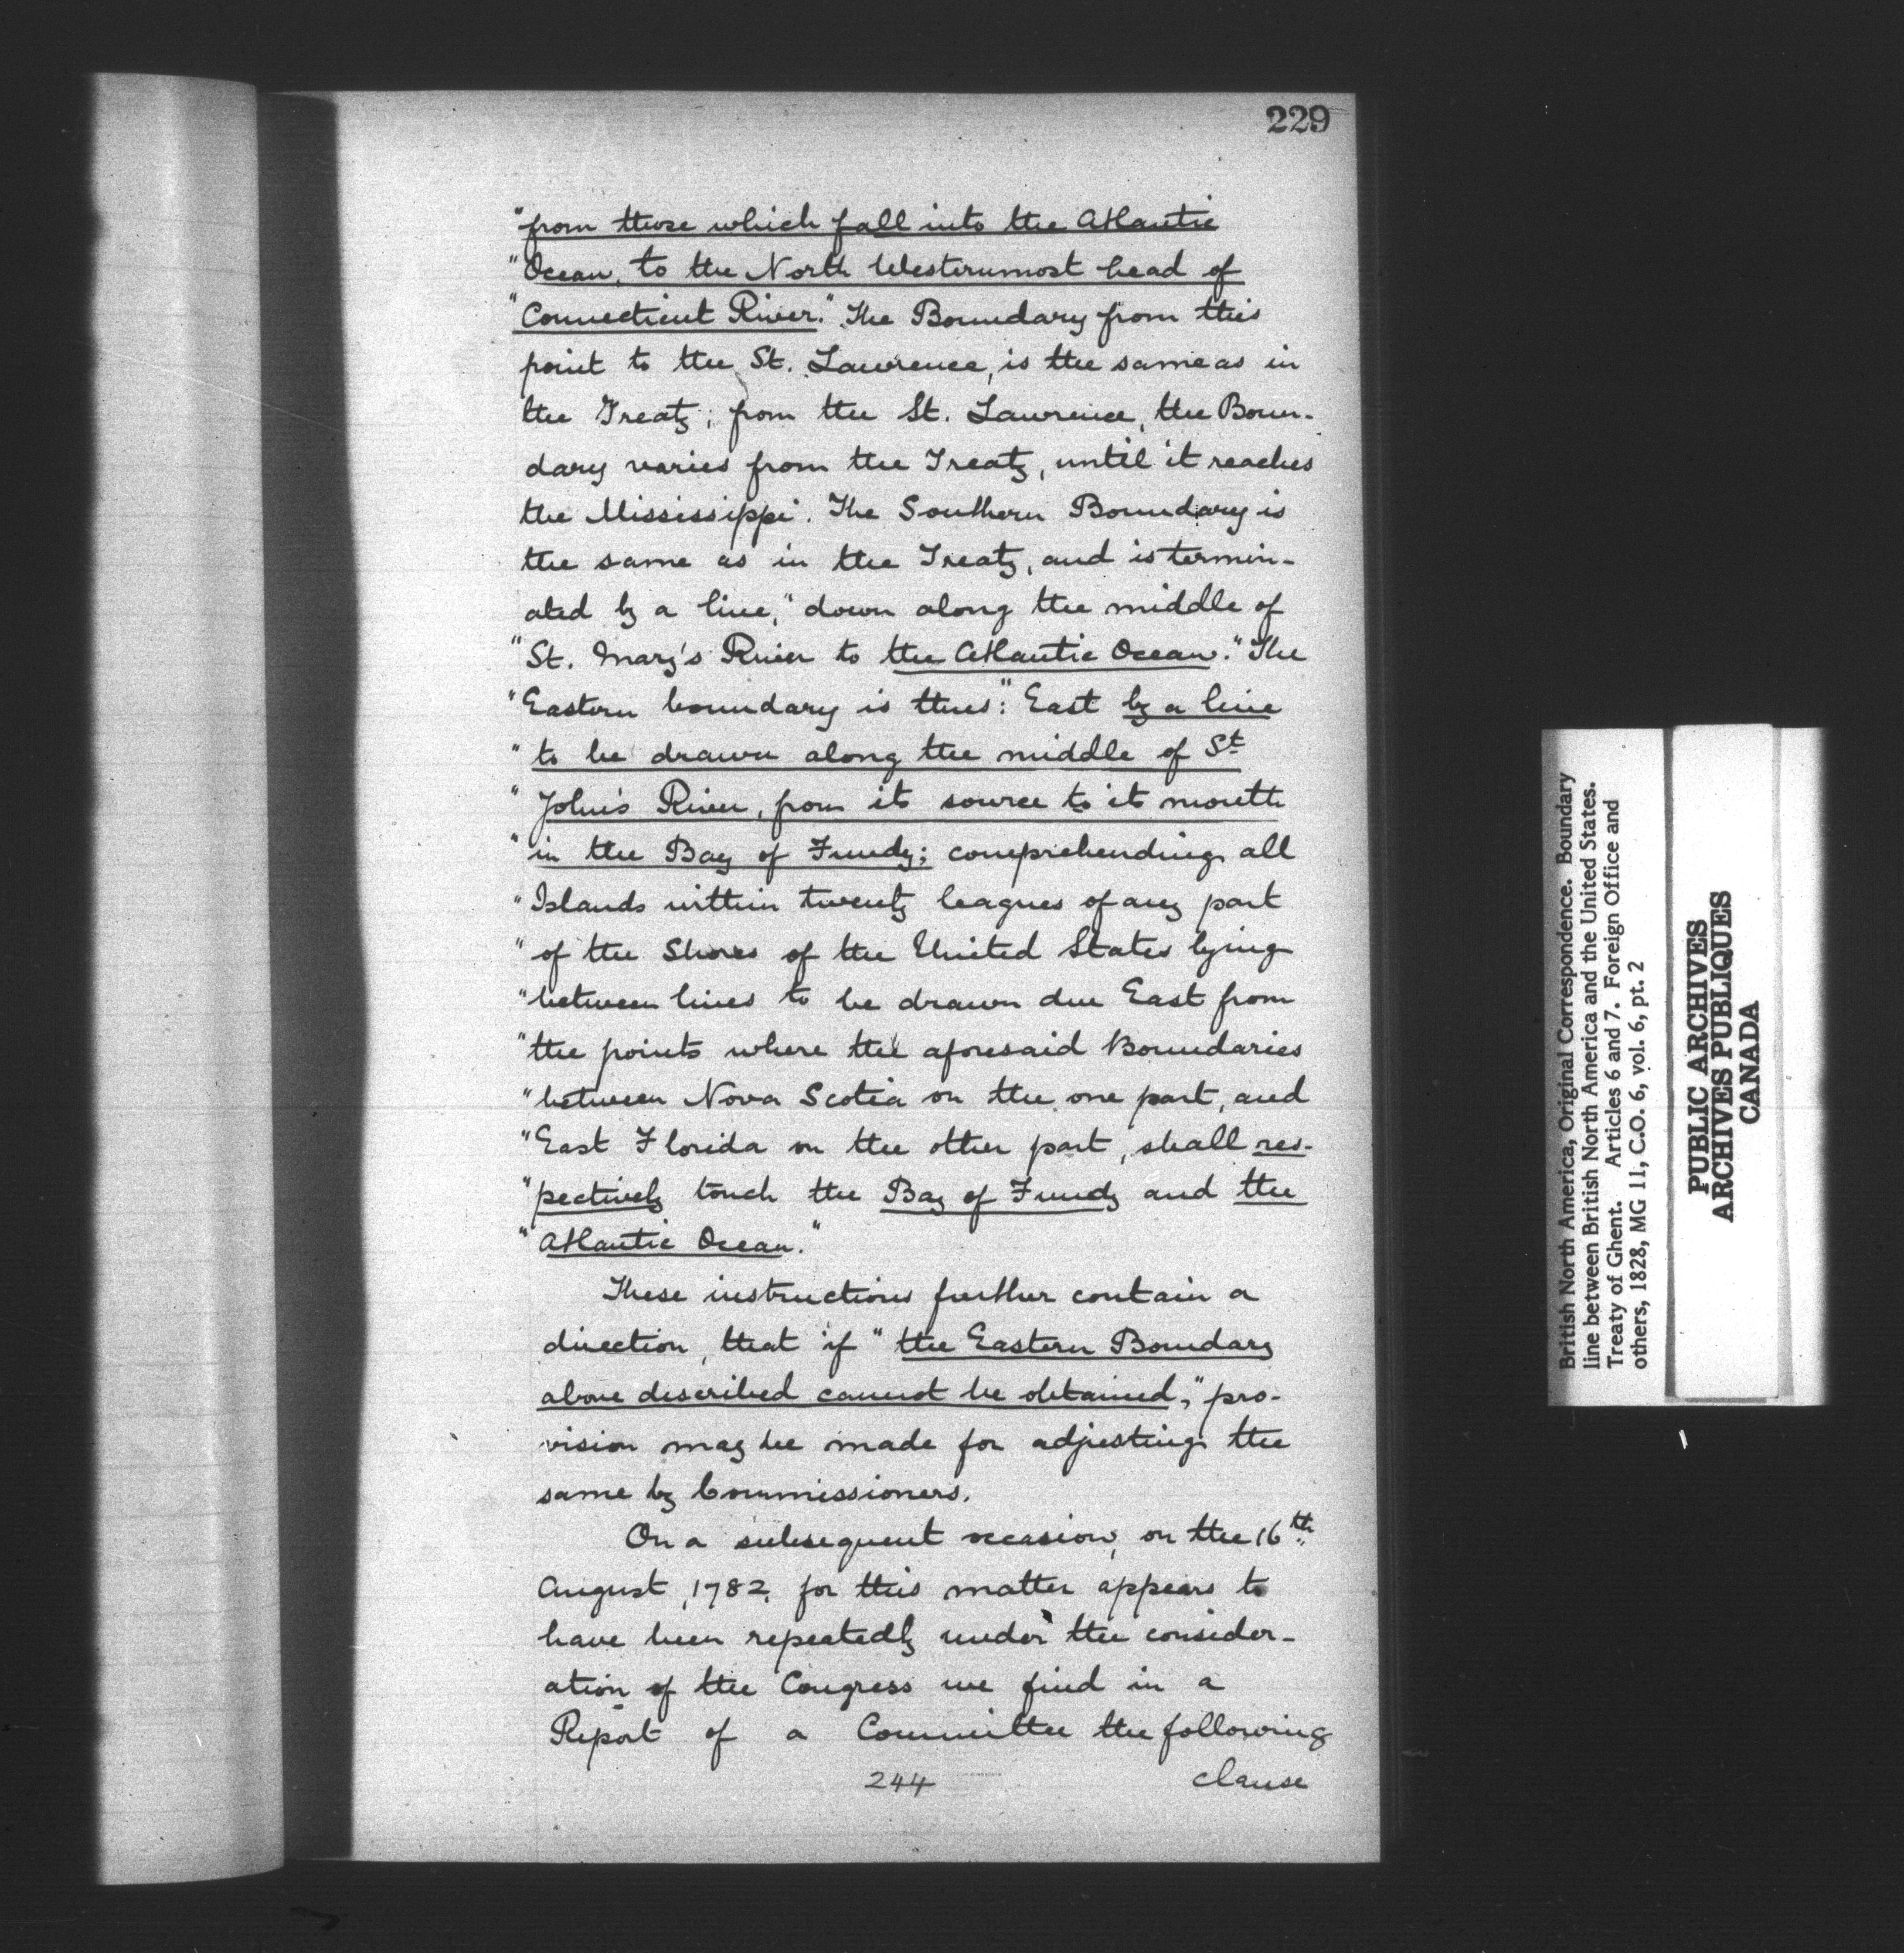 229
"from those which fall into the Atlantic
"Ocean, to the North Westernmost head of
"Connecticut River." The Boundary from this
point to the St. Lawrence, is the same as in
the Treaty; from the St. Lawrence, the Boun-
dary varies from the Treaty, until it reaches
the Mississippi. The Southern Boundary is
the same as in the Treaty, and is termin-
ated by a line, "down along the middle of
"St. Mary's River to the Atlantic Ocean." The
"Eastern boundary is thus: "East by a line
"to be drawn along the middle of St
"John's River, from its source to its mouth
"in the Bay of Fundy; comprehending all
"Islands within twenty leagues of any part
"of the Shores of the United States lying
"between lines to be drawn due East from
"the points where the aforesaid Boundaries
"between Nova Scotia on the one part, and
"East Florida on the other part, shall res-
"pectively touch the Bay of Fundy and the
"Atlantic Ocean."
These instructions further contain a
direction, that if "the Eastern Boundary
above described cannot be obtained," pro-
vision may be made for adjusting the
same by Commissioners.
On a subsequent occasion, on the 16th
August, 1782, for this matter appears to
have been repeatedly under the consider-
ation of the Congress we find in a
Report of a Committee the following
244 clause
British North America, Original Correspondence. Boundary
line between British North America and the United States.
Treaty of Ghent. Articles 6 and 7. Foreign Office and
others, 1828, MG 11, C.O. 6, vol. 6, pt. 2
PUBLIC ARCHIVES
ARCHIVES PUBLIQUES
CANADA